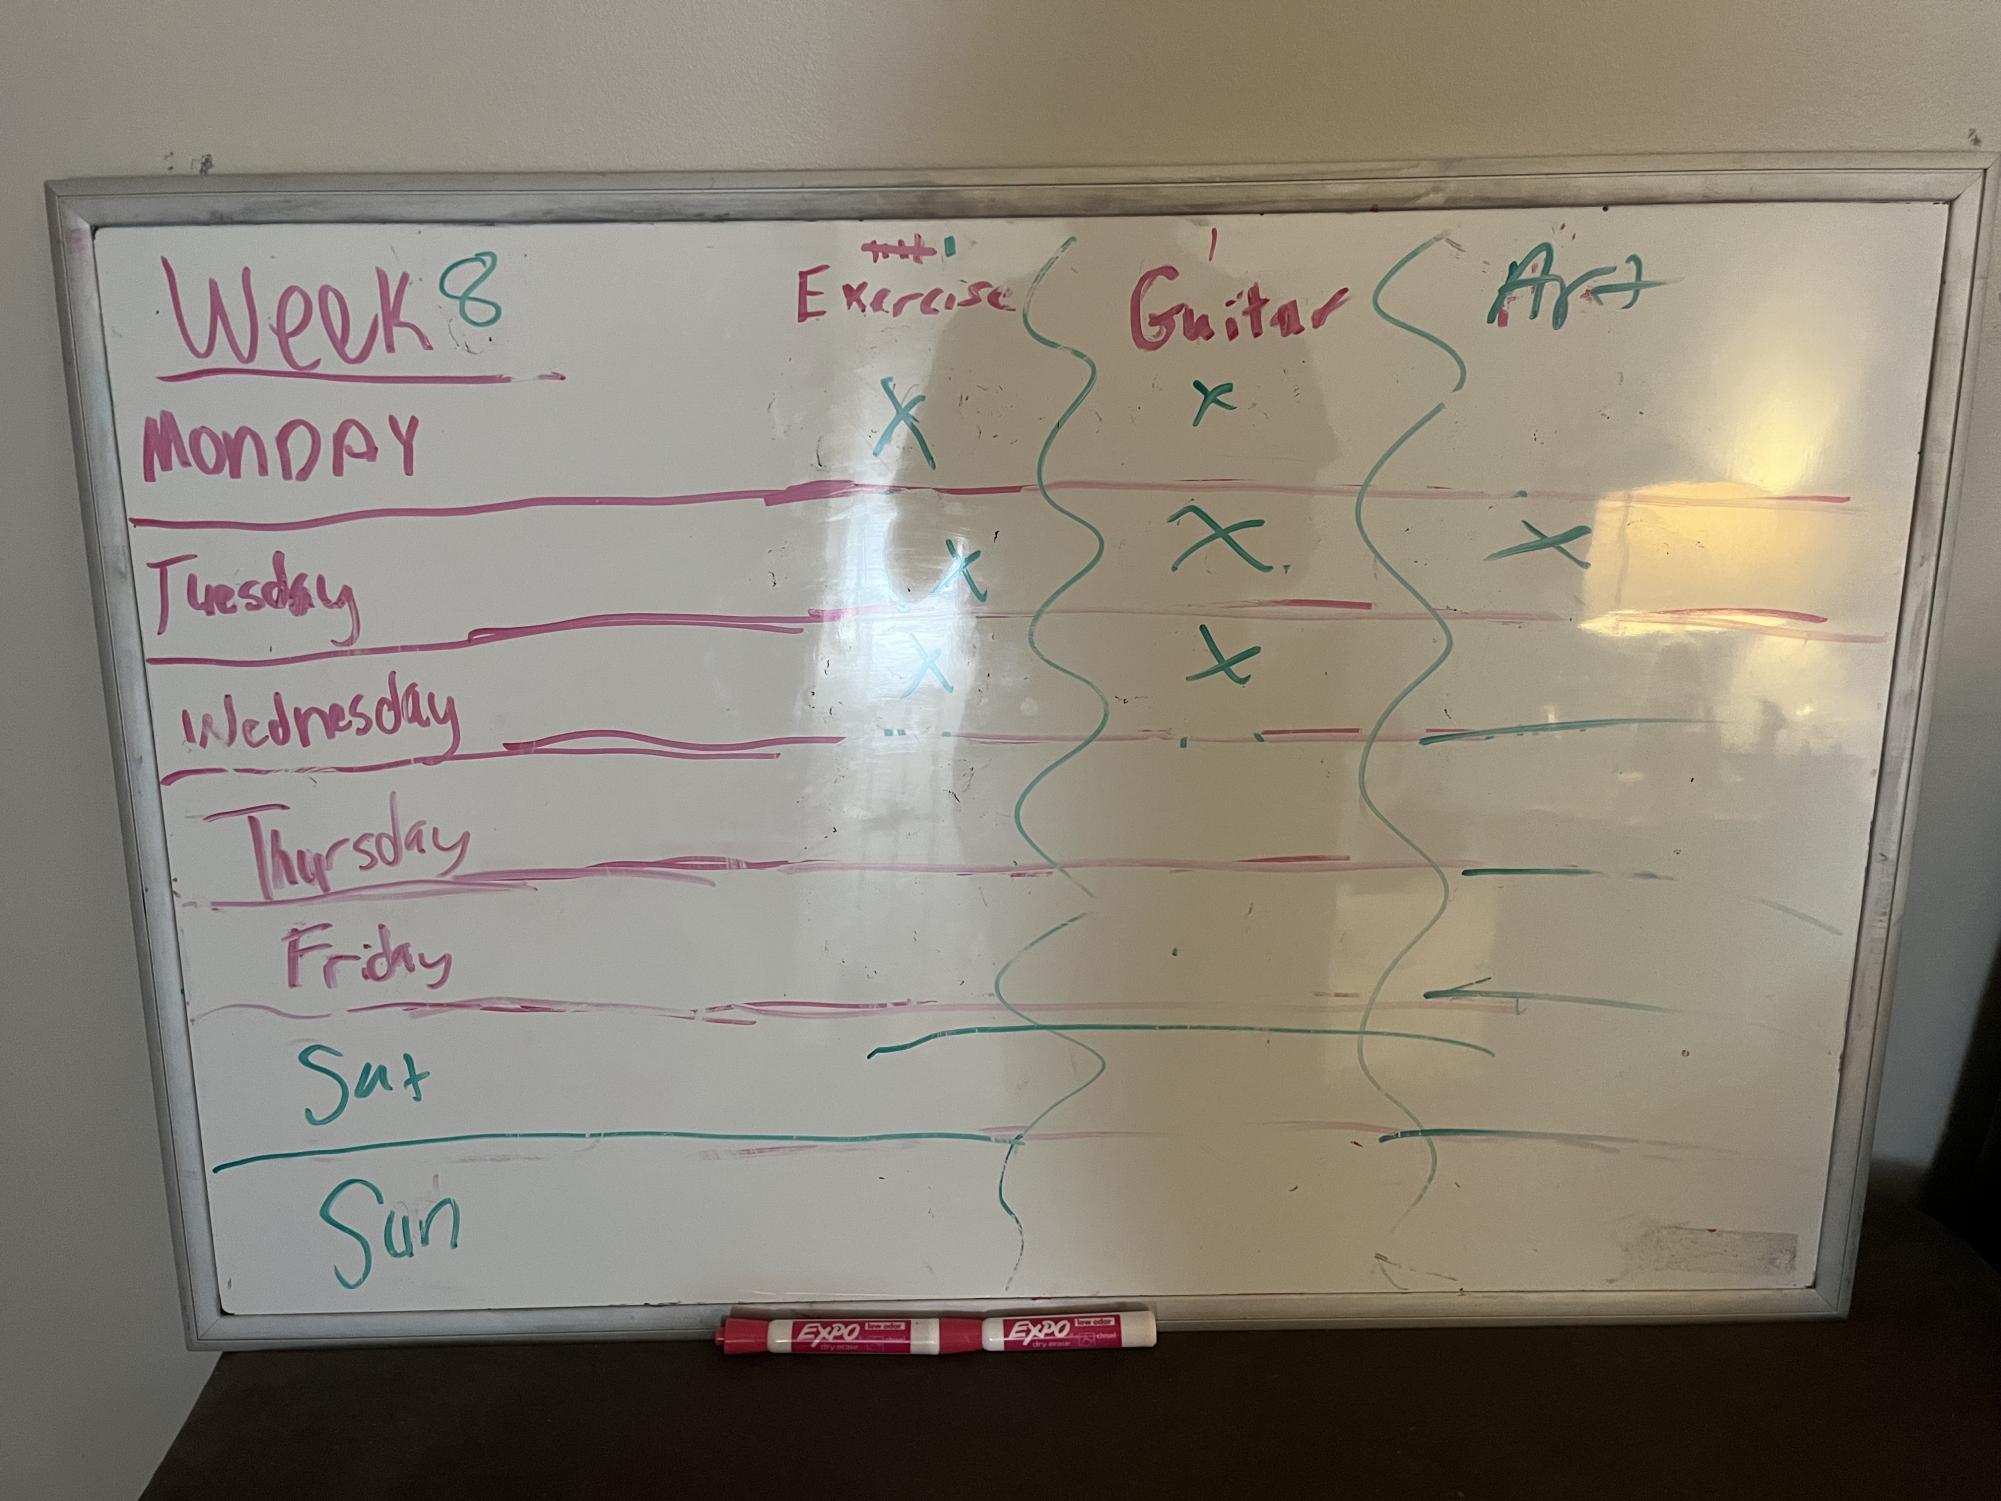 Week 8 Exercise Guitar Art
MONDAY X X
Tuesday X X X
Wednesday X X
Thursday
Friday
Sat
Sun
EXPO low odor EXPO low odor
dry erase chisel dry erase chisel